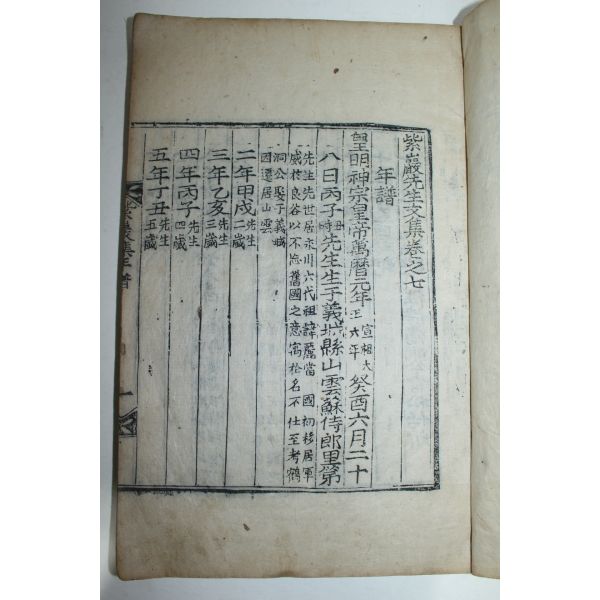 紫巖先生文集卷之七
年譜
皇明神宗皇帝萬曆元年 宣祖大王六年 癸酉六月二十
八日丙子 時 先生生于義城縣山雲蘇侍郎里第
先生先世居永川六代祖諱 當國初移居軍
威枝良谷以不忘舊國之意寓於名不仕至考鶴
洞公娶于義城
因遷居山雲
二年甲戌 先生二歲
三年乙亥 先生三歲
四年丙子 先生四歲
五年丁丑 先生五歲
紫巖集年譜
一